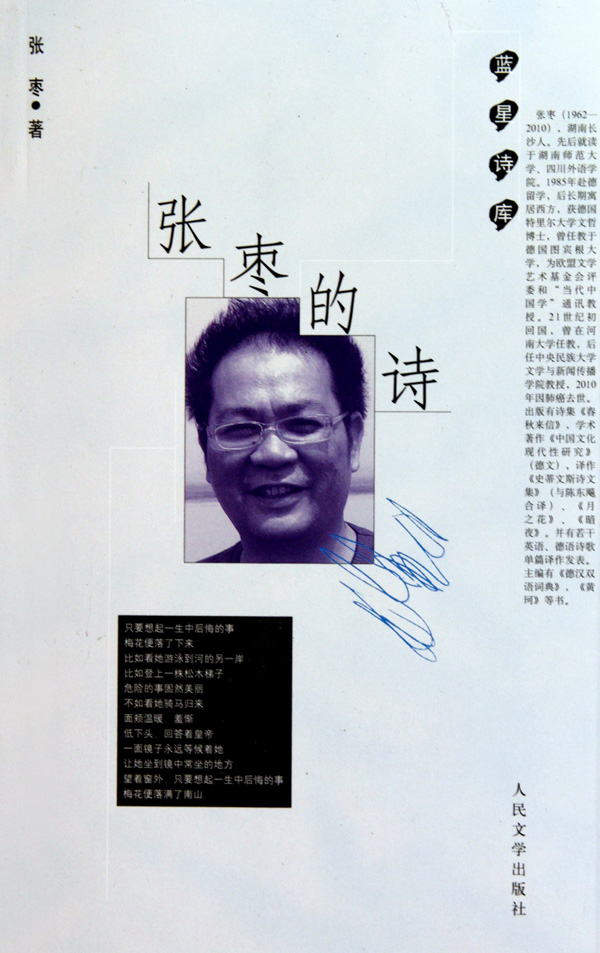 张枣●著
蓝星诗库
张枣的诗
张枣（1962—
2010），湖南长
沙人。先后就读
于湖南师范大
学、四川外语学
院。1985年赴德
留学，后长期寓
居西方，获德国
特里尔大学文哲
博士，曾任教于
德国图宾根大
学，为欧盟文学
艺术基金会评
委和“当代中
国学”通讯教
授。21世纪初
回国，曾在河
南大学任教，后
任中央民族大学
文学与新闻传播
学院教授，2010
年因肺癌去世。
出版有诗集《春
秋来信》，学术
著作《中国文化
现代性研究》
（德文），译作
《史蒂文斯诗文
集》（与陈东飚
合译）、《月
之花》、《暗
夜》。并有若干
英语、德语诗歌
单篇译作发表。
主编有《德汉双
语词典》，《黄
珂》等书。
只要想起一生中后悔的事
梅花便落了下来
比如看她游泳到河的另一岸
比如登上一株松木梯子
危险的事固然美丽
不如看她骑马归来
面颊温暖　羞惭
低下头，回答着皇帝
一面镜子永远等候着她
让她坐到镜中常坐的地方
望着窗外，只要想起一生中后悔的事
梅花便落满了南山
人民文学出版社